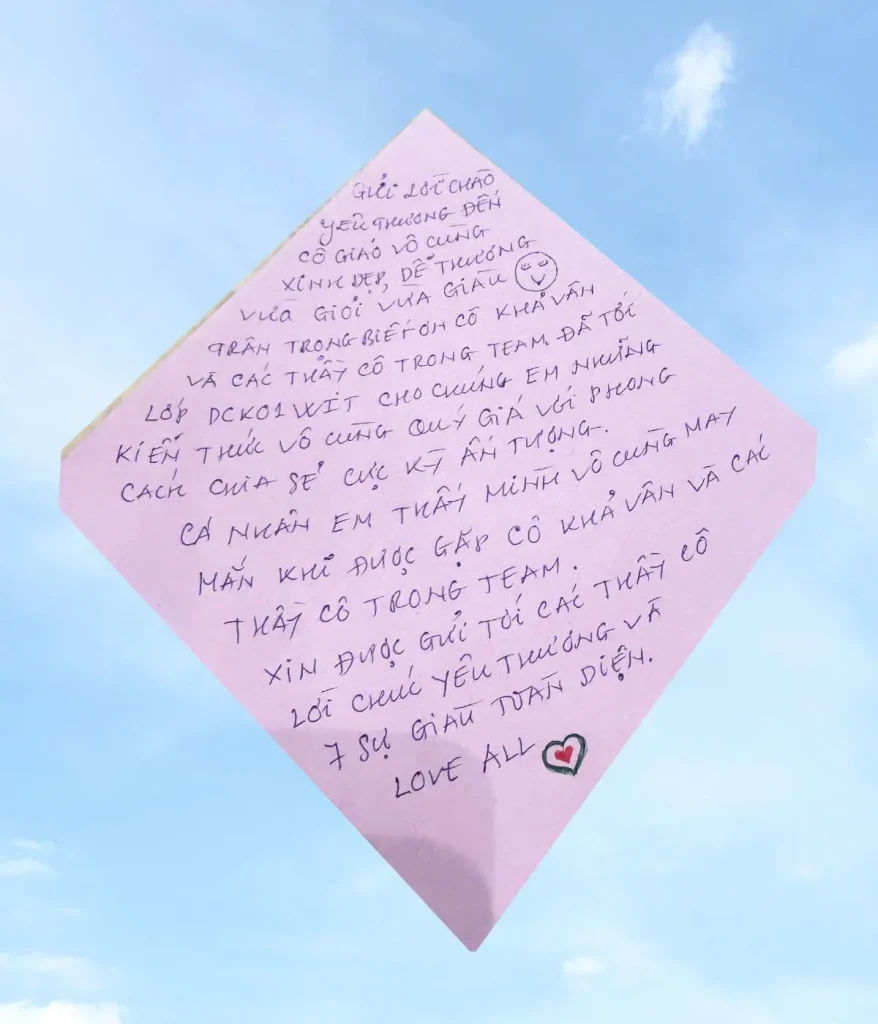 GỬI LỜI CHÀO
YÊU THƯƠNG ĐẾN
CÔ GIÁO VÔ CÙNG
XINH ĐẸP, DỄ THƯƠNG
VỪA GIỎI VỪA GIÀU
TRÂN TRỌNG BIẾT ƠN CÔ KHẢ VÂN
VÀ CÁC THẦY CÔ TRONG TEAM ĐÃ TỚI
LỚP DCK01 WIT CHO CHÚNG EM NHỮNG
KIẾN THỨC VÔ CÙNG QUÝ GIÁ VỚI PHONG
CÁCH CHIA SẺ CỰC KỲ ẤN TƯỢNG.
CÁ NHÂN EM THẤY MÌNH VÔ CÙNG MAY
MẮN KHI ĐƯỢC GẶP CÔ KHẢ VÂN VÀ CÁC
THẦY CÔ TRONG TEAM.
XIN ĐƯỢC GỬI TỚI CÁC THẦY CÔ
LỜI CHÚC YÊU THƯƠNG VÀ
7 SỰ GIÀU TOÀN DIỆN.
LOVE ALL